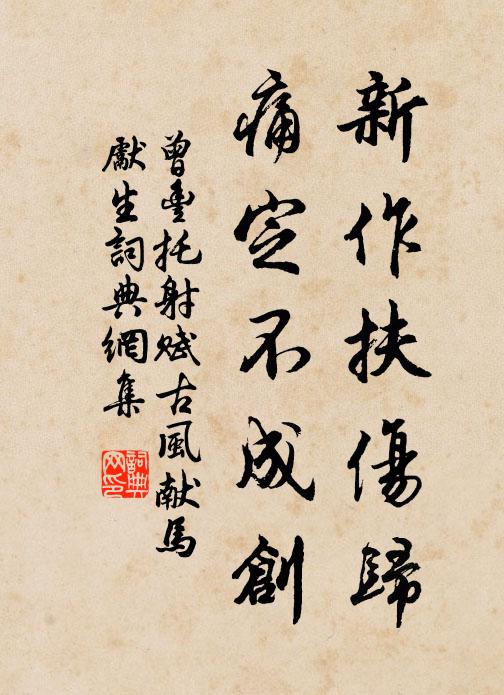 新作扶傷歸
痛定不成創
曾豊托射賦古風献馬
獻生詞典網集
詞典
网印